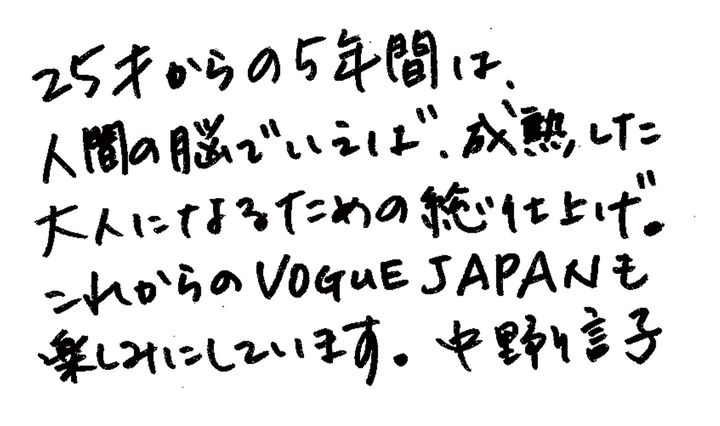 25才からの5年間は、
人間の脳でいえば、成熟した
大人になるための総仕上げ。
これからのVOGUE JAPANも
楽しみにしています。中野信子